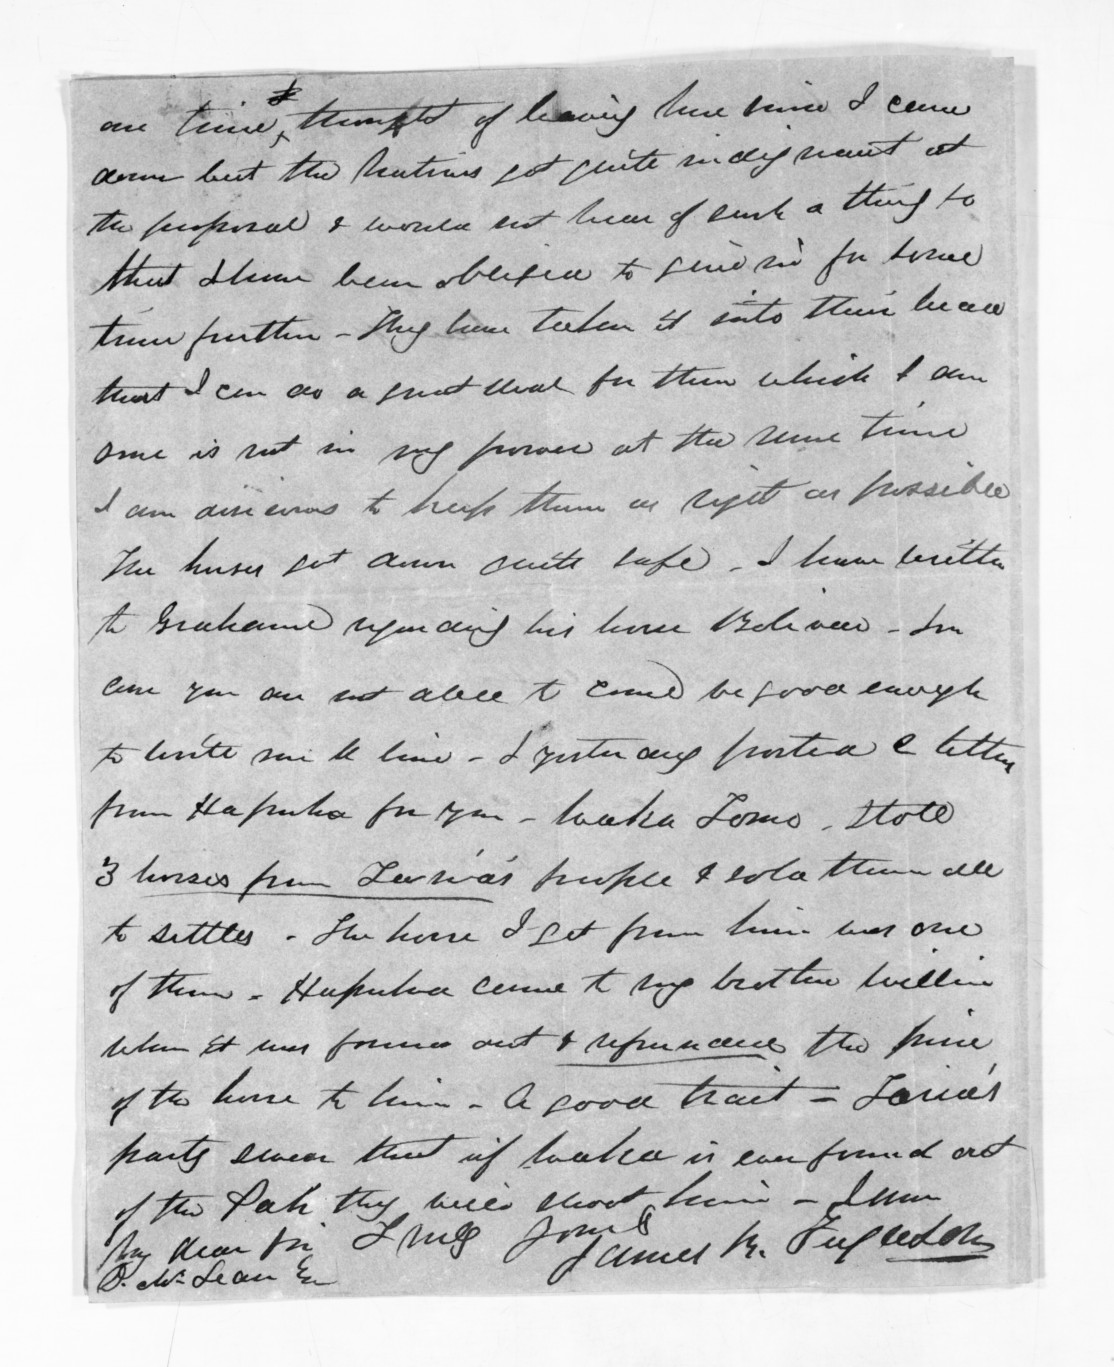 one time I thought of leaving here since I came
down but the Natives got quite indignant at
the proposal & would not hear of such a thing so
that I have been obliged to give in for some
time further - They have taken it into their head
that I can do a great deal for them which I am
sure is not in my power at the same time
I am desirous to keep them as right as possible
The horses got down quite safe - I have written
to Grahame regarding his horse - In
case you are not able to come be good enough
to write me a line - I yesterday posted a letter
from Hapuka for you - Waka Tomo - Stole
3 horses from Tareha's people & sold them all
to settlers - The horse I got from him was one
of them - Hapuka came to my brother William
when it was found out & refunded the price
of the horse to him - A good trait - Tareha's
party swear that if Waka is ever found out
of the Pah they will shoot him - I am
My dear Sir Truly Yours James R. Ferguson
D. McLean Esq